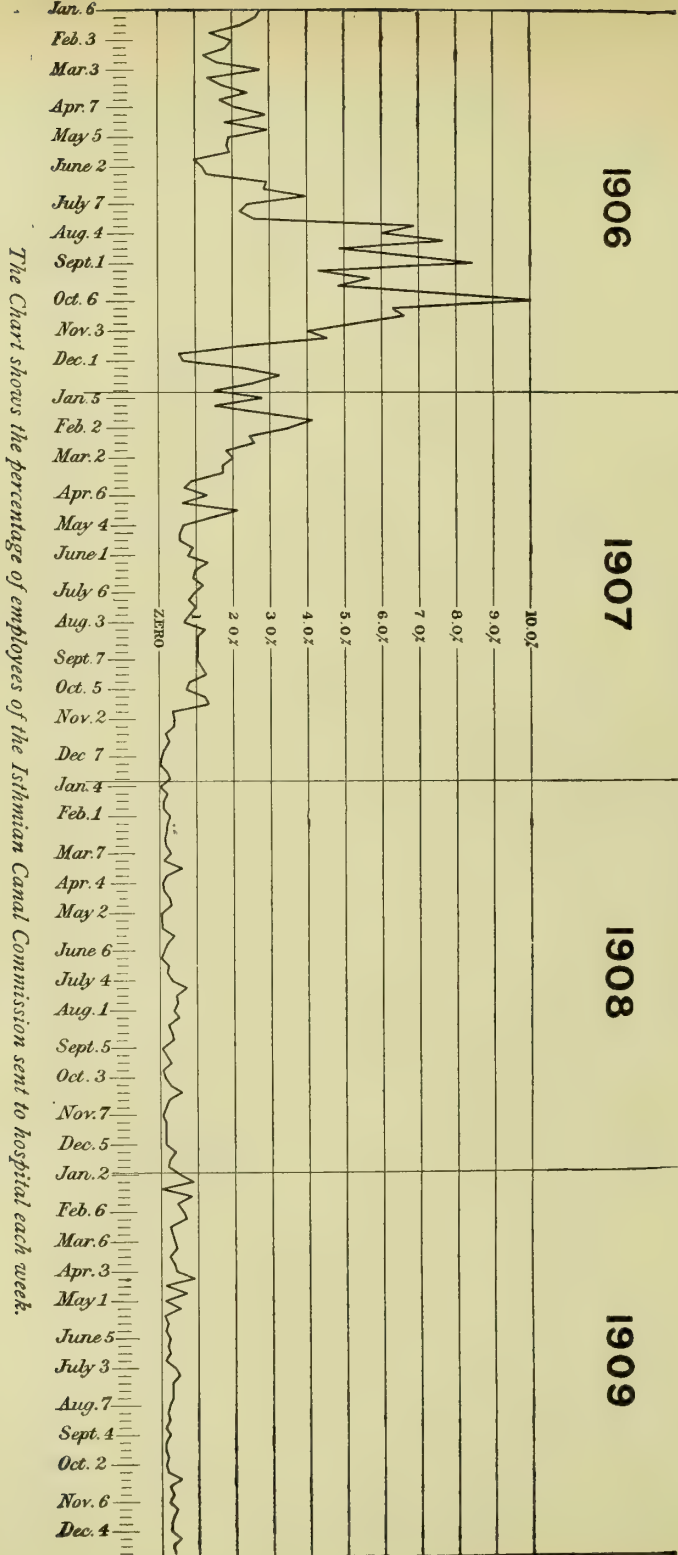 1906
1907
1908
1909
Jan. 6
Feb. 3
Mar. 3
Apr. 7
May 5
June 2
July 7
Aug. 4
Sept. 1
Oct. 6
Nov. 3
Dec. 1
Jan. 5
Feb. 2
Mar. 2
Apr. 6
May 4
June 1
July 6
Aug. 3
Sept. 7
Oct. 5
Nov. 2
Dec 7
Jan. 4
Feb. 1
Mar. 7
Apr. 4
May 2
June 6
July 4
Aug. 1
Sept. 5
Oct. 3
Nov. 7
Dec. 5
Jan. 2
Feb. 6
Mar. 6
Apr. 3
May 1
June 5
July 3
Aug. 7
Sept. 4
Oct. 2
Nov. 6
Dec. 4
10.0%
9.0%
8.0%
7.0%
6.0%
5.0%
4.0%
3.0%
2.0%
1
ZERO
The Chart shows the percentage of employees of the Isthmian Canal Commission sent to hospital each week.